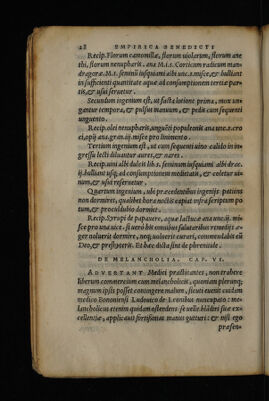 28 EMPIRICA BENEDICTI
Recip. Florum camomillæ, florum violarum, florum ane
thi, florum nenupharis, ana M.i.s. Corticum radicum man
dragoræ M.s. seminis iusquiami albi unc.s. misce, & bulliant
in sufficienti quantitate aquæ ad consumptionem tertiæ par-
tis, & usui seruetur.
Secundum ingenium est, ut facta lotione prima, mox un-
gantur tempora, & pulsus manuum, & pedū cum sequenti
unguento.
Recip. olei nenupharis, unguēti populeonis ana unc.s. cro
ci, opij ana gran. iij. misce pro linimento.
Tertium ingenium est, ut cum sequenti uino calido in in-
gressu lecti diluantur aures, & nares.
Recip. uini albi dulcis lib.s. seminum iusquiami albi drac.
iij. bulliant usq; ad consumptionem medietatis, & coletur ui-
num, & usui reseruetur.
Quartum ingenium, ubi præcedentibus ingenijs patiens
non dormiret, qualibet hora noctis capiat infra scriptum po
tum, & proculdubio dormiet.
Recip. Syrupi de papauere, aquæ lactucæ ana unc.iij. mi-
sce pro una uice. si uerò his omnibus salutaribus remedijs æ
ger noluerit dormire, neq; uoluerit curari, commendabis eū
Deo, & præsbyteris. Et hæc dicta sint de phrenitide.
DE MELANCHOLIA. CAP. VI.
ADVERTANT Medici præstitantes, non trahere
liberum commercium cum melancholicis, quoniam plerunq;
magnum ipsis posset contingere malum, sicuti euenit cuidam
medico Bononiensi Ludouico de Leonibus nuncupato: me-
lancholicus etenim quidam ostendens se uelle blādiri suæ ex-
cellentiæ, applicauit fortissimas manus gutturi: & nisi ego
præsen-